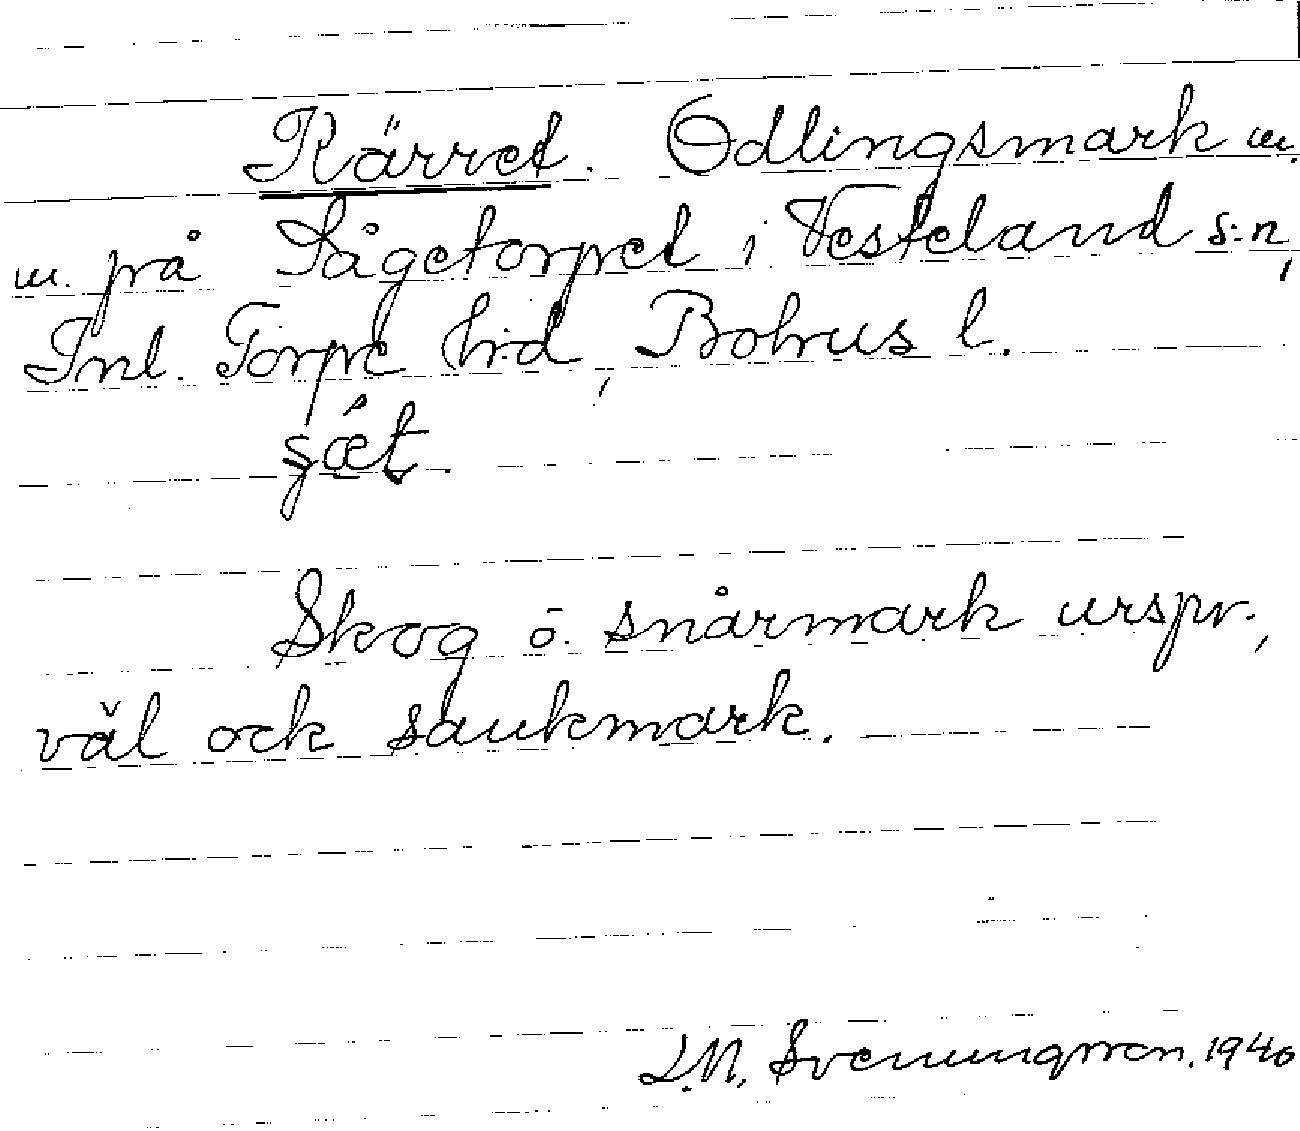 Kärret. Odlingsmark m.
m. på Sågetorpet i Vesteland s:n,
Inl. Torpe hrd, Bohus l.
Skog o. snårmark urspr.,
väl ock sankmark.
J.N. Svenungsson. 1940